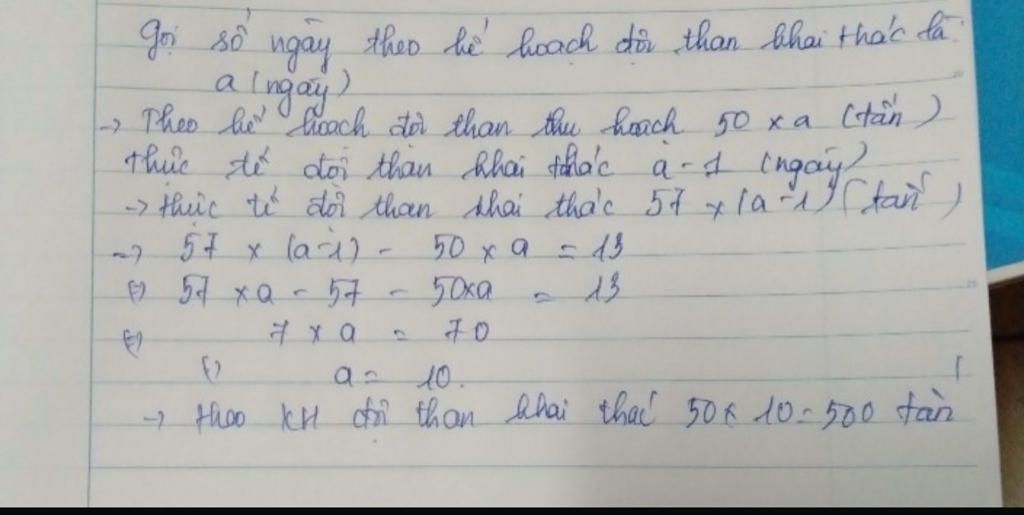 gọi số ngày theo kế hoạch đội than khai thác là:
a (ngày)
→ Theo kế hoạch đội than thu hoạch 50 x a (tấn)
thực tế đội than khai thác a - 1 (ngày)
→ thực tế đội than khai thác 57 x (a-1) (tấn)
→ 57 x (a-1) - 50 x a = 13
(=) 57 x a - 57 - 50xa = 13
(=) 7 x a = 70
(=) a = 10.
→ theo KH đội than khai thác 50 x 10 = 500 tấn